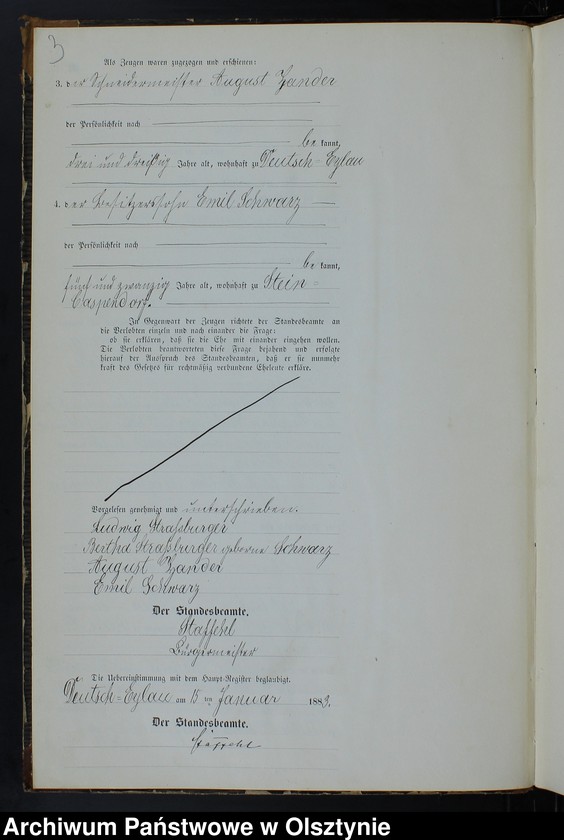 3
Als Zeugen waren zugezogen und erschienen:
3. der Schneidermeister August Zander
der Persönlichkeit nach
be kannt,
drei und dreißig Jahre alt, wohnhaft zu Deutsch-Eylau
4. der Besitzerssohn Emil Schwarz
der Persönlichkeit nach
be kannt,
fünf und zwanzig Jahre alt, wohnhaft zu Stein-
Caspendorf.
In Gegenwart der Zeugen richtete der Standesbeamte an
die Verlobten einzeln und nach einander die Frage:
ob sie erklären, daß sie die Ehe mit einander eingehen wollen.
Die Verlobten beantworteten diese Frage bejahend und erfolgte
hierauf der Ausspruch des Standesbeamten, daß er sie nunmehr
kraft des Gesetzes für rechtmäßig verbundene Eheleute erkläre.
Vorgelesen genehmigt und unterschrieben.
Ludwig Straßburger
Bertha Straßburger geborene Schwarz
August Zander
Emil Schwarz
Der Standesbeamte.
Staffehl
Bürgermeister
Die Uebereinstimmung mit dem Haupt-Register beglaubigt.
Deutsch-Eylau am 15 ten Januar 1883.
Der Standesbeamte.
Staffehl
Archiwum Państwowe w Olsztynie